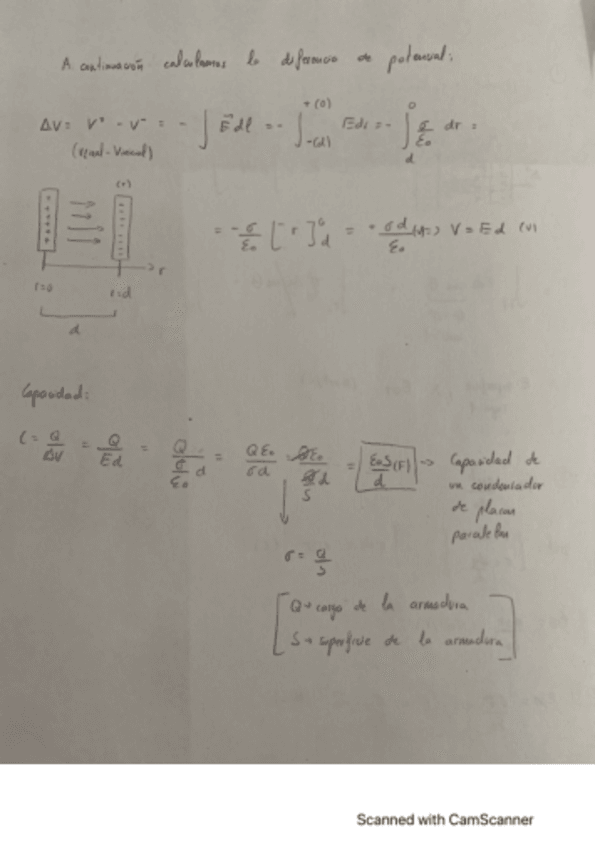 A continuación calculamos la diferencia de potencial:
ΔV = V⁺ - V⁻ = - ∫ E⃗ dl = - ∫₋(d)^+(0) E dl = - ∫_d^0 σ/ε₀ dr =
(Vfinal - Vinicial)
= -σ/ε₀ [ r ]_d^0 = + σd/ε₀ (⇔) V = Ed (V)
r
r=0 r=d
d
Capacidad:
C = Q/ΔV = Q/Ed = Q/(σ/ε₀ d) = Qε₀/σd = Qε₀/(Q/S d) = ε₀S/d (F) → Capacidad de
un condensador
de placas
paralelas
σ = Q/S
Q → carga de la armadura
S → superficie de la armadura
Scanned with CamScanner